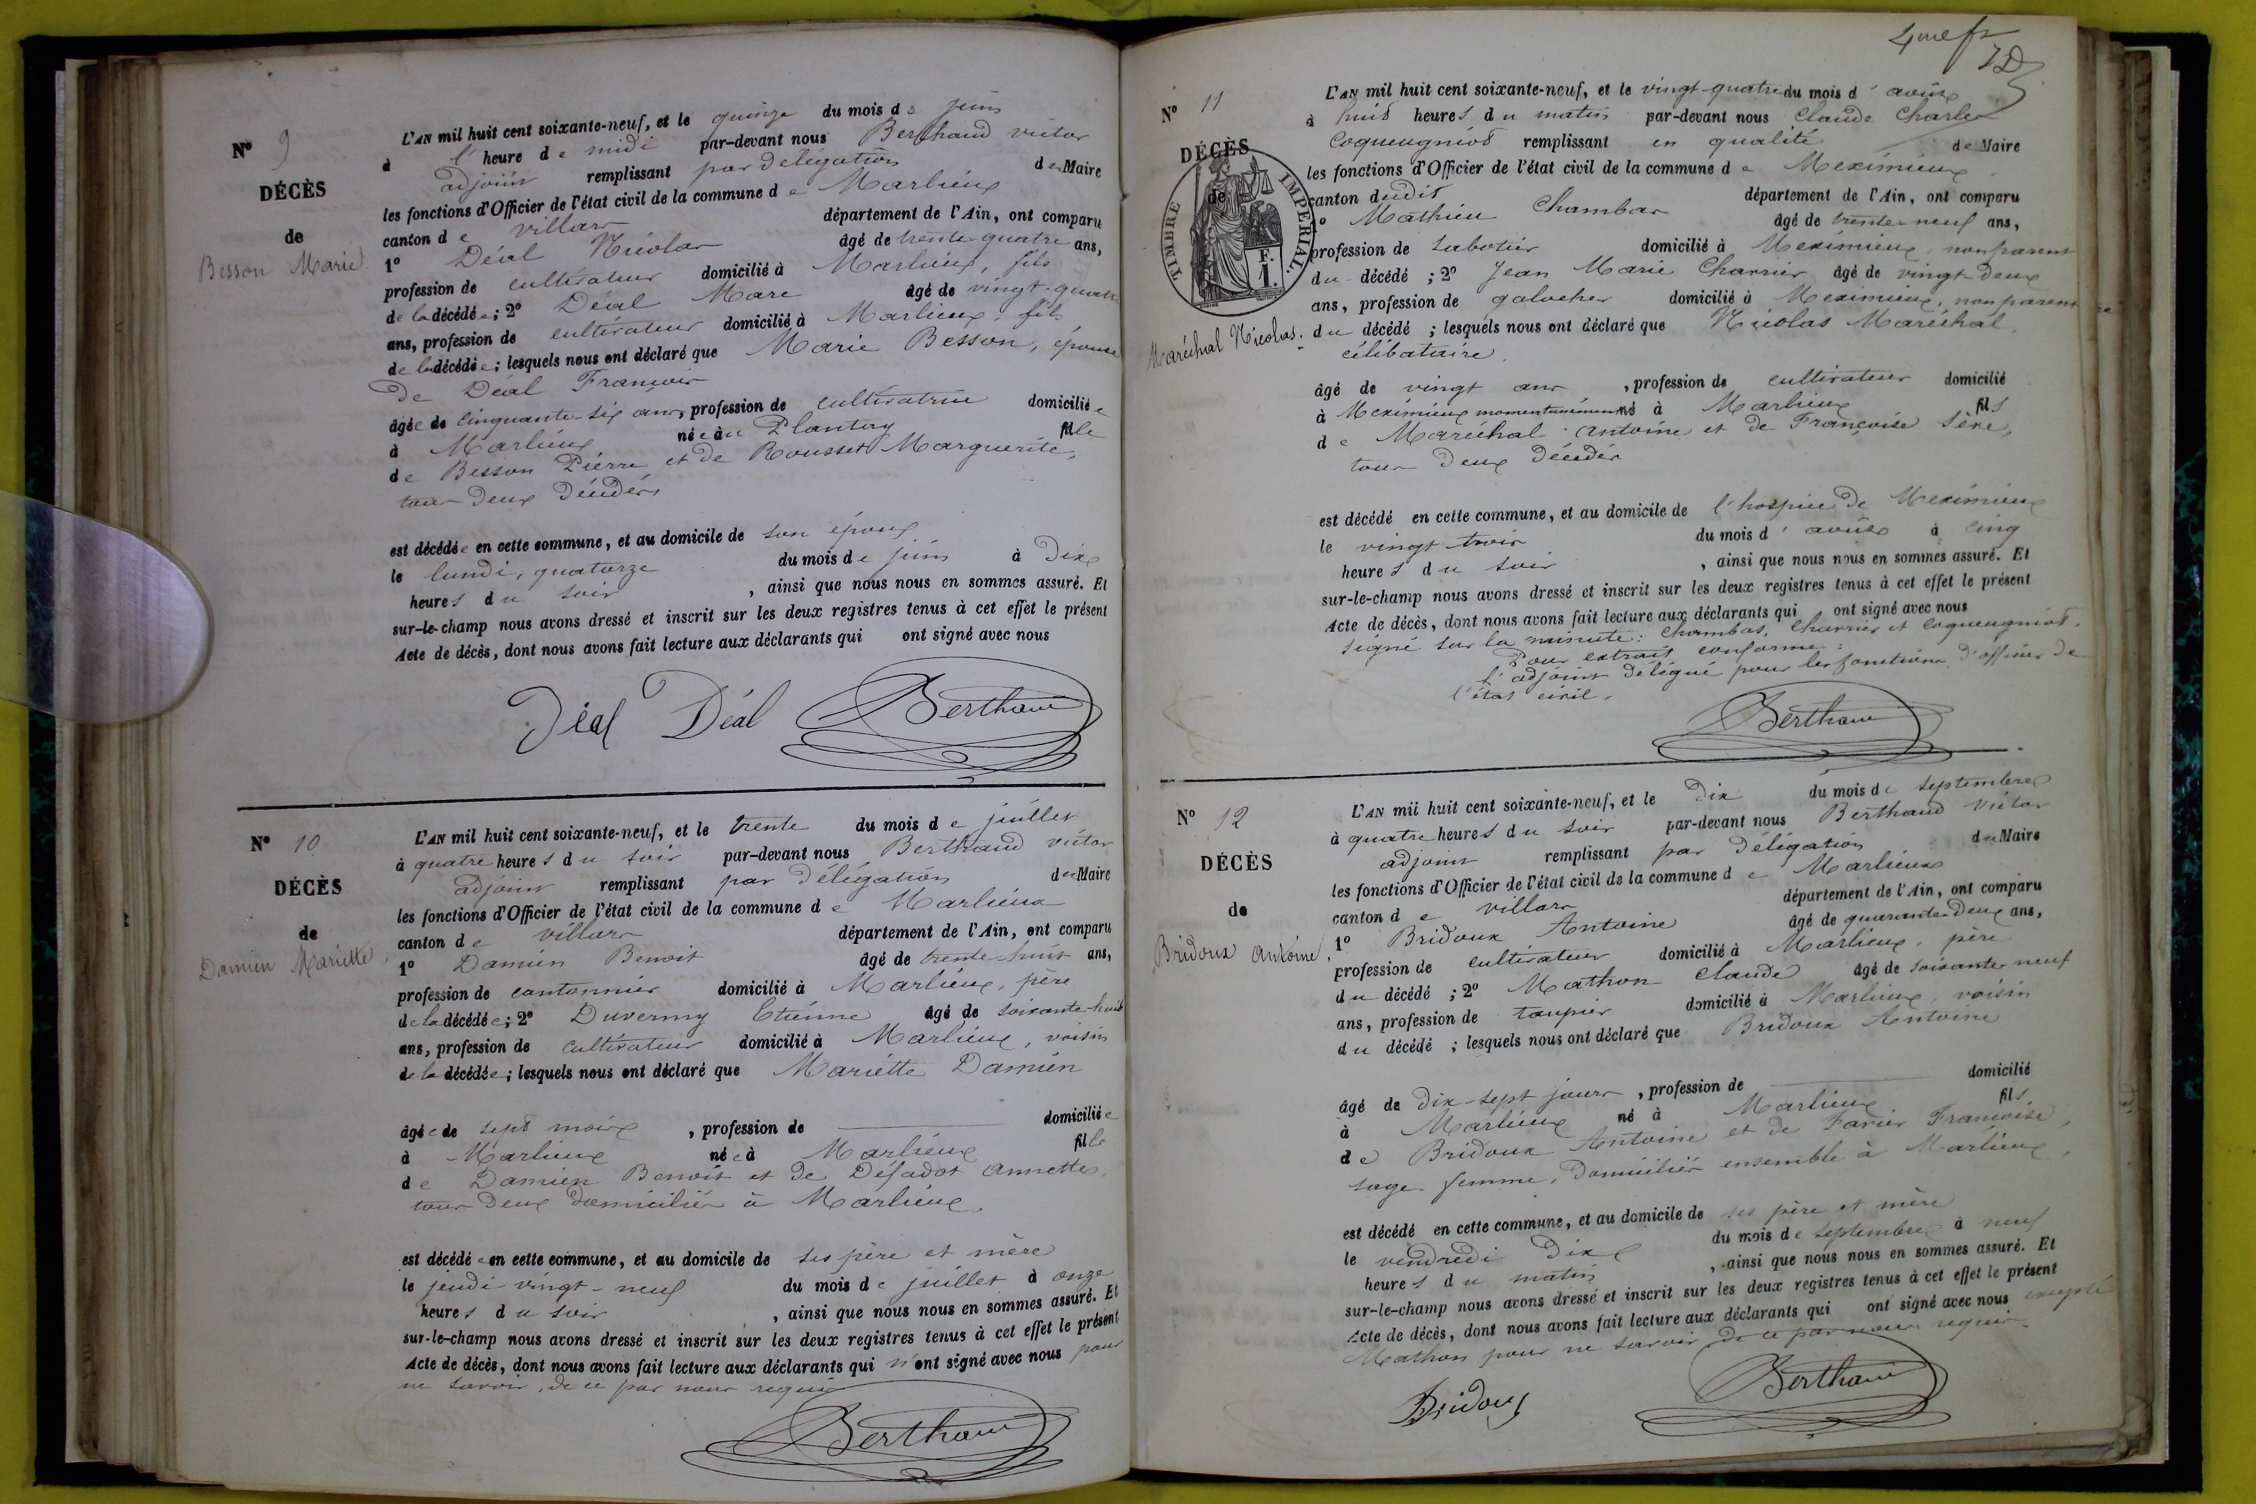 N° 9
DÉCÈS
de
Besson Marie
L'AN mil huit cent soixante-neuf, et le quinze du mois de juin
à l'heure de midi par-devant nous Berthaud victor
adjoint remplissant par délégation du Maire
les fonctions d'Officier de l'état civil de la commune de Marlieux
canton de villars département de l'Ain, ont comparu
1° Déal Nicolas âgé de trente-quatre ans,
profession de cultivateur domicilié à Marlieux, fils
de la décédée; 2° Déal Marc âgé de vingt-quatre
ans, profession de cultivateur domicilié à Marlieux, fils
de la décédée; lesquels nous ont déclaré que Marie Besson, épouse
de Déal François
âgée de cinquante-six ans, profession de cultivatrice domiciliée
à Marlieux née au Plantay fille
de Besson Pierre et de Rousset Marguerite,
tous deux décédés
est décédée en cette commune, et au domicile de son époux
le lundi, quatorze du mois de juin à dix
heures du soir, ainsi que nous nous en sommes assuré. Et
sur-le-champ nous avons dressé et inscrit sur les deux registres tenus à cet effet le présent
Acte de décès, dont nous avons fait lecture aux déclarants qui ont signé avec nous
Déal Déal Berthaud
N° 10
DÉCÈS
de
Damien Mariette
L'AN mil huit cent soixante-neuf, et le trente du mois de juillet
à quatre heures du soir par-devant nous Berthaud victor
adjoint remplissant par délégation du Maire
les fonctions d'Officier de l'état civil de la commune de Marlieux
canton de villars département de l'Ain, ont comparu
1° Damien Benoit âgé de trente-huit ans,
profession de cantonnier domicilié à Marlieux, père
de la décédée; 2° Duvermy Etienne âgé de soixante-huit
ans, profession de cultivateur domicilié à Marlieux, voisin
de la décédée; lesquels nous ont déclaré que Mariette Damien
âgée de sept mois, profession de domiciliée
à Marlieux née à Marlieux fille
de Damien Benoit et de Défadot annette,
tous deux domiciliés à Marlieux
est décédée en cette commune, et au domicile de ses père et mère
le jeudi vingt-neuf du mois de juillet à onze
heures du soir, ainsi que nous nous en sommes assuré. Et
sur-le-champ nous avons dressé et inscrit sur les deux registres tenus à cet effet le présent
Acte de décès, dont nous avons fait lecture aux déclarants qui n'ont signé avec nous pour
ne savoir, de ce par nous requis
Berthaud
4me f
N° 11
DÉCÈS
de
TIMBRE IMPÉRIAL.
F. 1.
Maréchal Nicolas.
L'AN mil huit cent soixante-neuf, et le vingt-quatre du mois d'août
à huit heures du matin par-devant nous Claude Charles
Coqueugniot remplissant en qualité de Maire
les fonctions d'Officier de l'état civil de la commune de Meximieux
canton dudit département de l'Ain, ont comparu
1° Mathieu Chambas âgé de trente-neuf ans,
profession de sabotier domicilié à Meximieux, non parent
du décédé; 2° Jean Marie Charrier âgé de vingt-deux
ans, profession de galocher domicilié à Meximieux, non parent
du décédé; lesquels nous ont déclaré que Nicolas Maréchal,
célibataire,
âgé de vingt ans, profession de cultivateur domicilié
à Meximieux momentanément né à Marlieux fils
de Maréchal antoine et de Françoise Sève,
tous deux décédés
est décédé en cette commune, et au domicile de l'hospice de Meximieux
le vingt-trois du mois d'août à cinq
heures du soir, ainsi que nous nous en sommes assuré. Et
sur-le-champ nous avons dressé et inscrit sur les deux registres tenus à cet effet le présent
Acte de décès, dont nous avons fait lecture aux déclarants qui ont signé avec nous
signé sur la minute: Chambas, Charrier et Coqueugniot.
Pour extrait conforme:
L'adjoint délégué pour les fonctions d'officier de
l'état civil,
Berthaud
N° 12
DÉCÈS
de
Bridoux antoine
L'AN mil huit cent soixante-neuf, et le dix du mois de septembre
à quatre heures du soir par-devant nous Berthaud victor
adjoint remplissant par délégation du Maire
les fonctions d'Officier de l'état civil de la commune de Marlieux
canton de villars département de l'Ain, ont comparu
1° Bridoux Antoine âgé de quarante-deux ans,
profession de cultivateur domicilié à Marlieux, père
du décédé; 2° Mathon Claude âgé de soixante-neuf
ans, profession de taupier domicilié à Marlieux, voisin
du décédé; lesquels nous ont déclaré que Bridoux Antoine
âgé de dix-sept jours, profession de domicilié
à Marlieux né à Marlieux fils
de Bridoux Antoine et de Favier Françoise,
sage-femme, domiciliés ensemble à Marlieux,
est décédé en cette commune, et au domicile de ses père et mère
le vendredi dix du mois de septembre à neuf
heures du matin, ainsi que nous nous en sommes assuré. Et
sur-le-champ nous avons dressé et inscrit sur les deux registres tenus à cet effet le présent
Acte de décès, dont nous avons fait lecture aux déclarants qui ont signé avec nous excepté
Mathon pour ne savoir de ce par nous requis.
Bridoux Berthaud